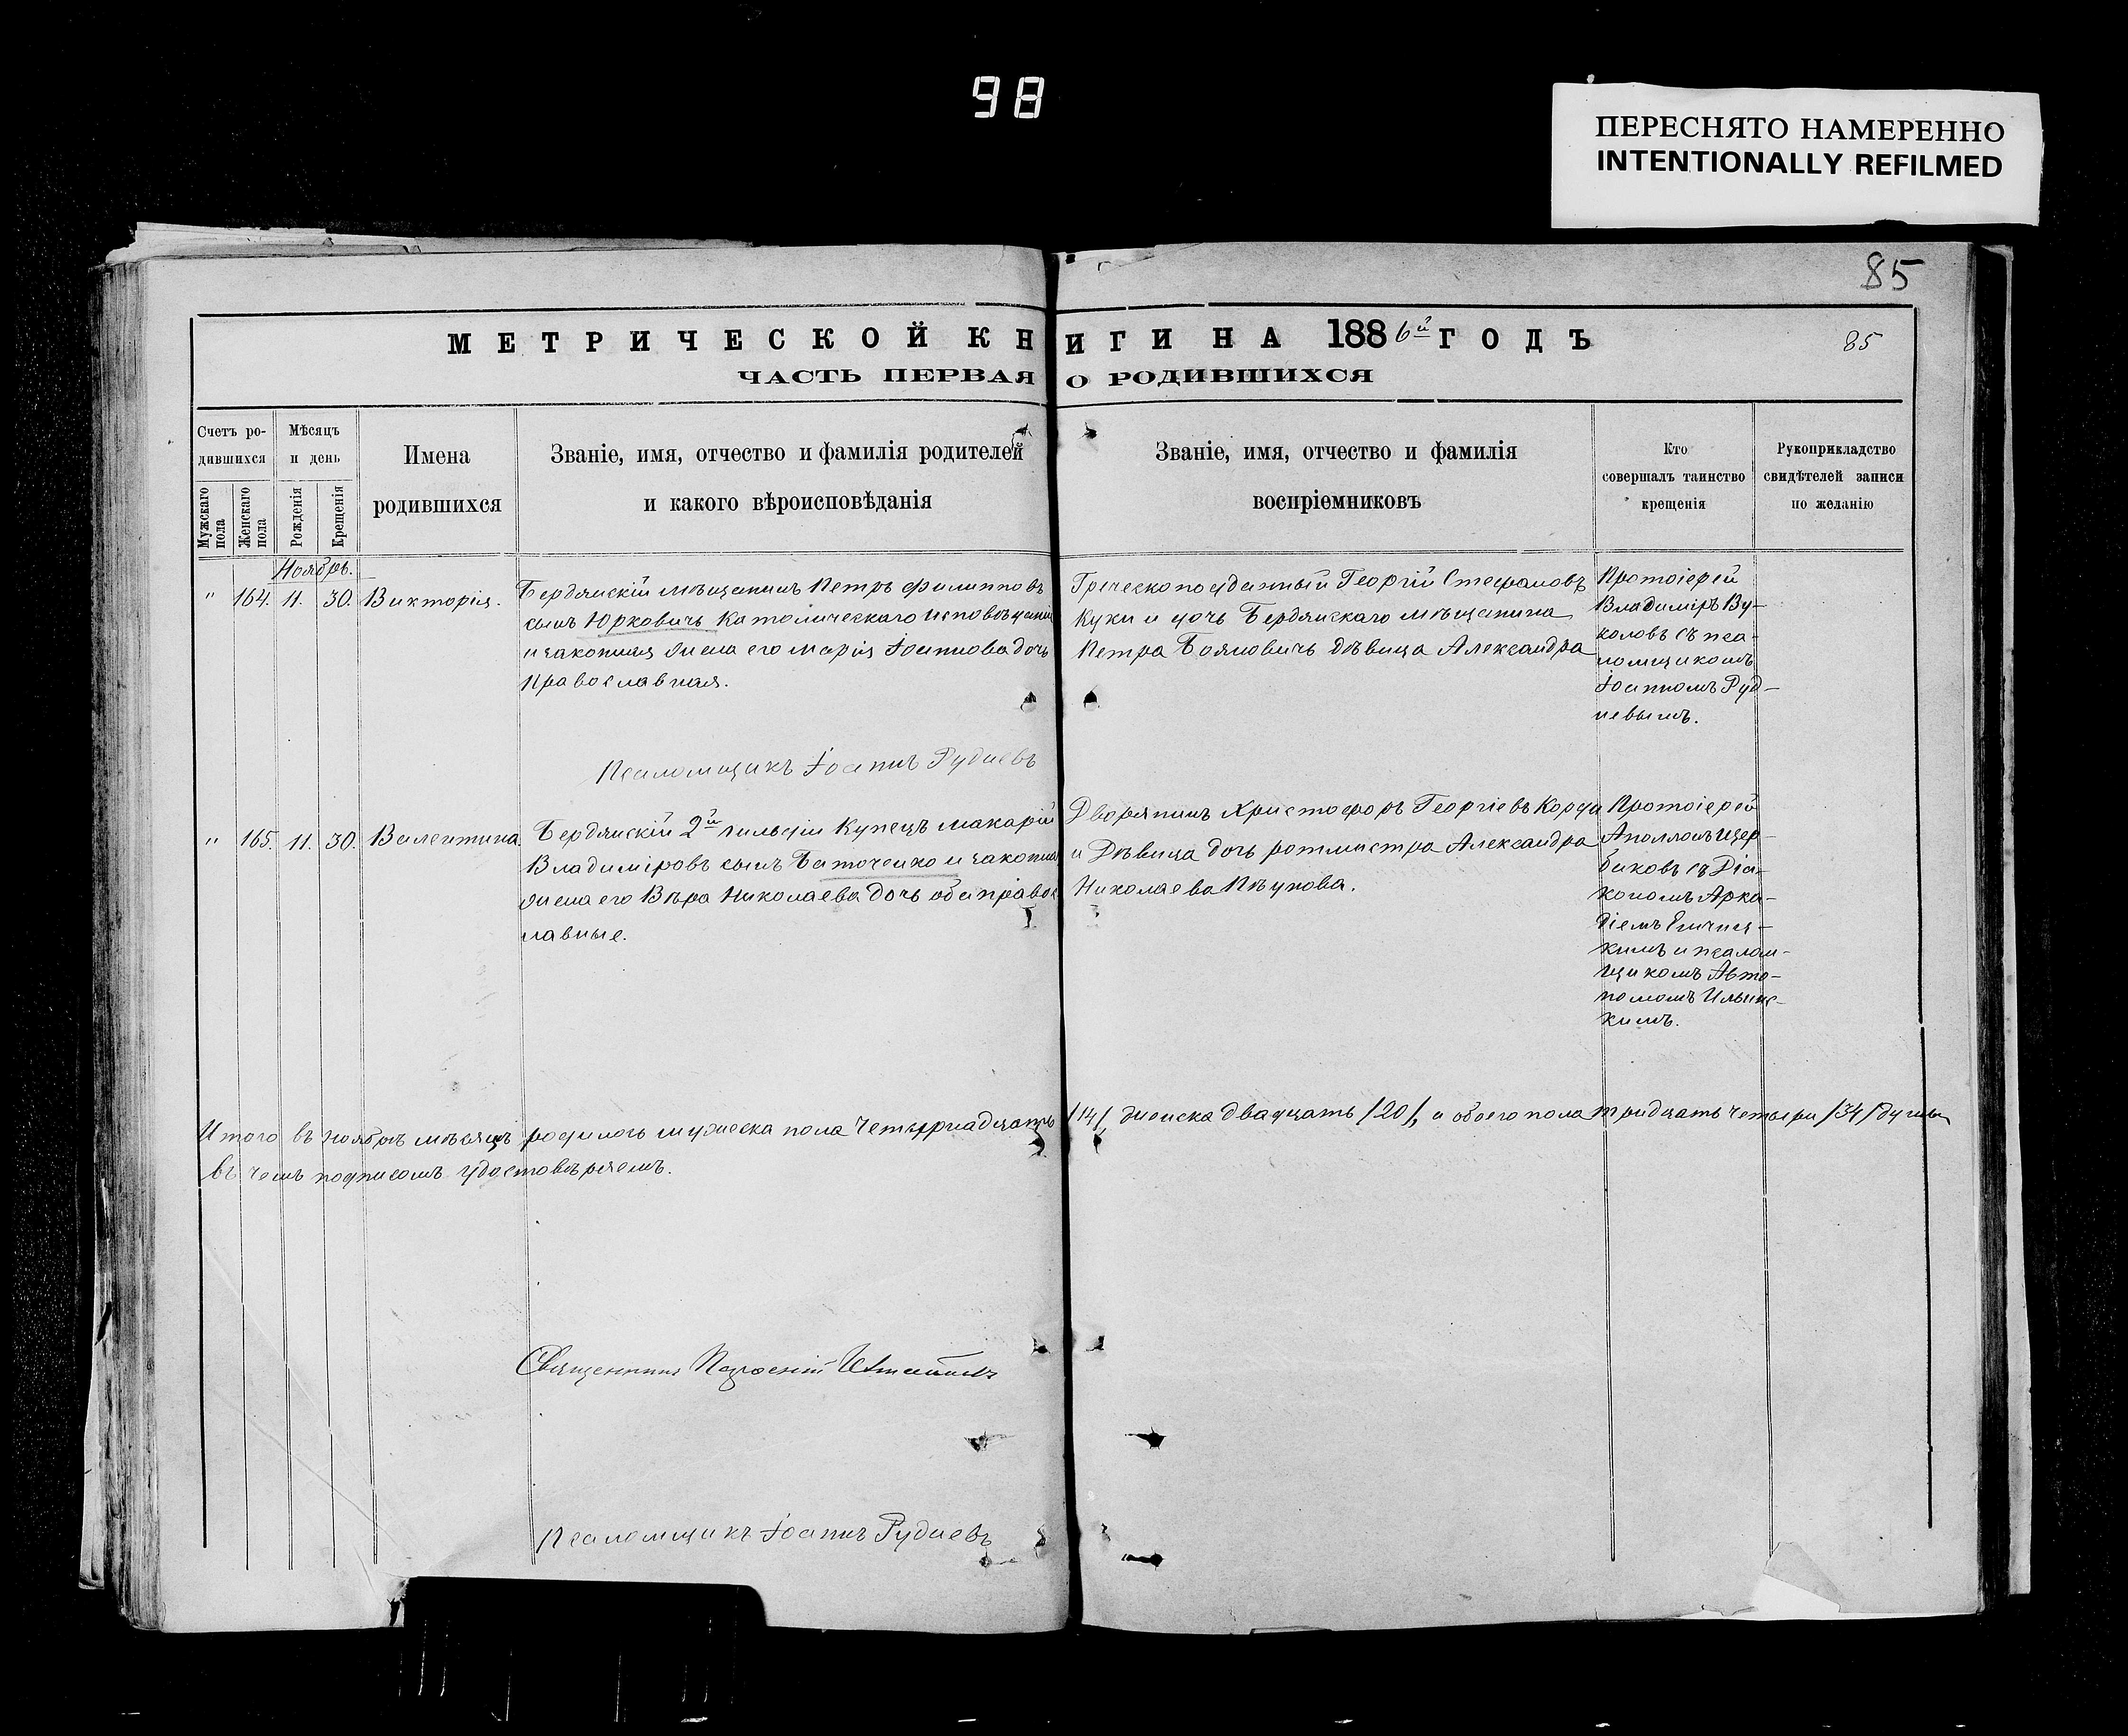 98
ПЕРЕСНЯТО НАМЕРЕННО
INTENTIONALLY REFILMED
85
МЕТРИЧЕСКОЙ КНИГИ НА 1886й ГОДЪ
85
ЧАСТЬ ПЕРВАЯ О РОДИВШИХСЯ
Счетъ ро-
дившихся
Мужскаго пола
Женскаго пола
Мѣсяцъ
и день
Рожденія
Крещенія
Имена
родившихся
Званіе, имя, отчество и фамилія родителей
и какого вѣроисповѣданія
Званіе, имя, отчество и фамилія
воспріемниковъ
Кто
совершалъ таинство
крещенія
Рукоприкладство
свидѣтелей записи
по желанію
Ноябрь.
" 164. 11. 30. Викторія.
Бердянскій мѣщанинъ Петръ Филипповъ
сынъ Юрковичъ Католическаго исповѣданія
и законная жена его Марія Іоаннова дочь
Православная.
Греческоподданный Георгій Стефановъ
Куки и дочь Бердянскаго мѣщанина
Петра Бояновичъ дѣвица Александра
Протоіерей
Владиміръ Ву-
коловъ съ пса-
ломщикомъ
Іоанномъ Руд-
невымъ.
Псаломщикъ Іоаннъ Рудневъ
" 165. 11. 30. Валентина.
Бердянскій 2й гильдіи Купецъ Макарій
Владиміровъ сынъ Баточенко и законная
жена его Вѣра Николаева дочь оба правос
лавные.
Дворянинъ Христофоръ Георгіевъ
и Дѣвица дочь ротмистра Александра
Николаева
Протоіерей
Аполлонъ Щер-
биковъ съ Діа-
кономъ Арка-
діемъ
кимъ и псалом-
щикомъ Авто-
номомъ Ильинс-
кимъ.
Итого въ ноябрѣ мѣсяцѣ родилось мужеска пола четырнадцать /14/, женска двадцать /20/, а обоего пола тридцать четыри /34/ души
въ чемъ подписомъ удостовѣряемъ.
Священникъ
Псаломщикъ Іоаннъ Рудневъ